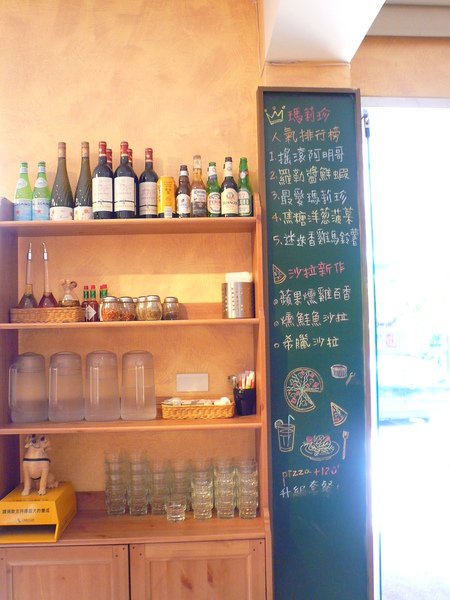 瑪莉珍
人氣排行榜
1. 搖滾阿明哥
2. 羅勒醬鮮蝦
3. 最愛瑪莉珍
4. 焦糖洋蔥菠菜
5. 迷迭香雞馬鈴薯
沙拉新作
蘋果燻雞百香
燻鮭魚沙拉
希臘沙拉
pizza +120
升級套餐